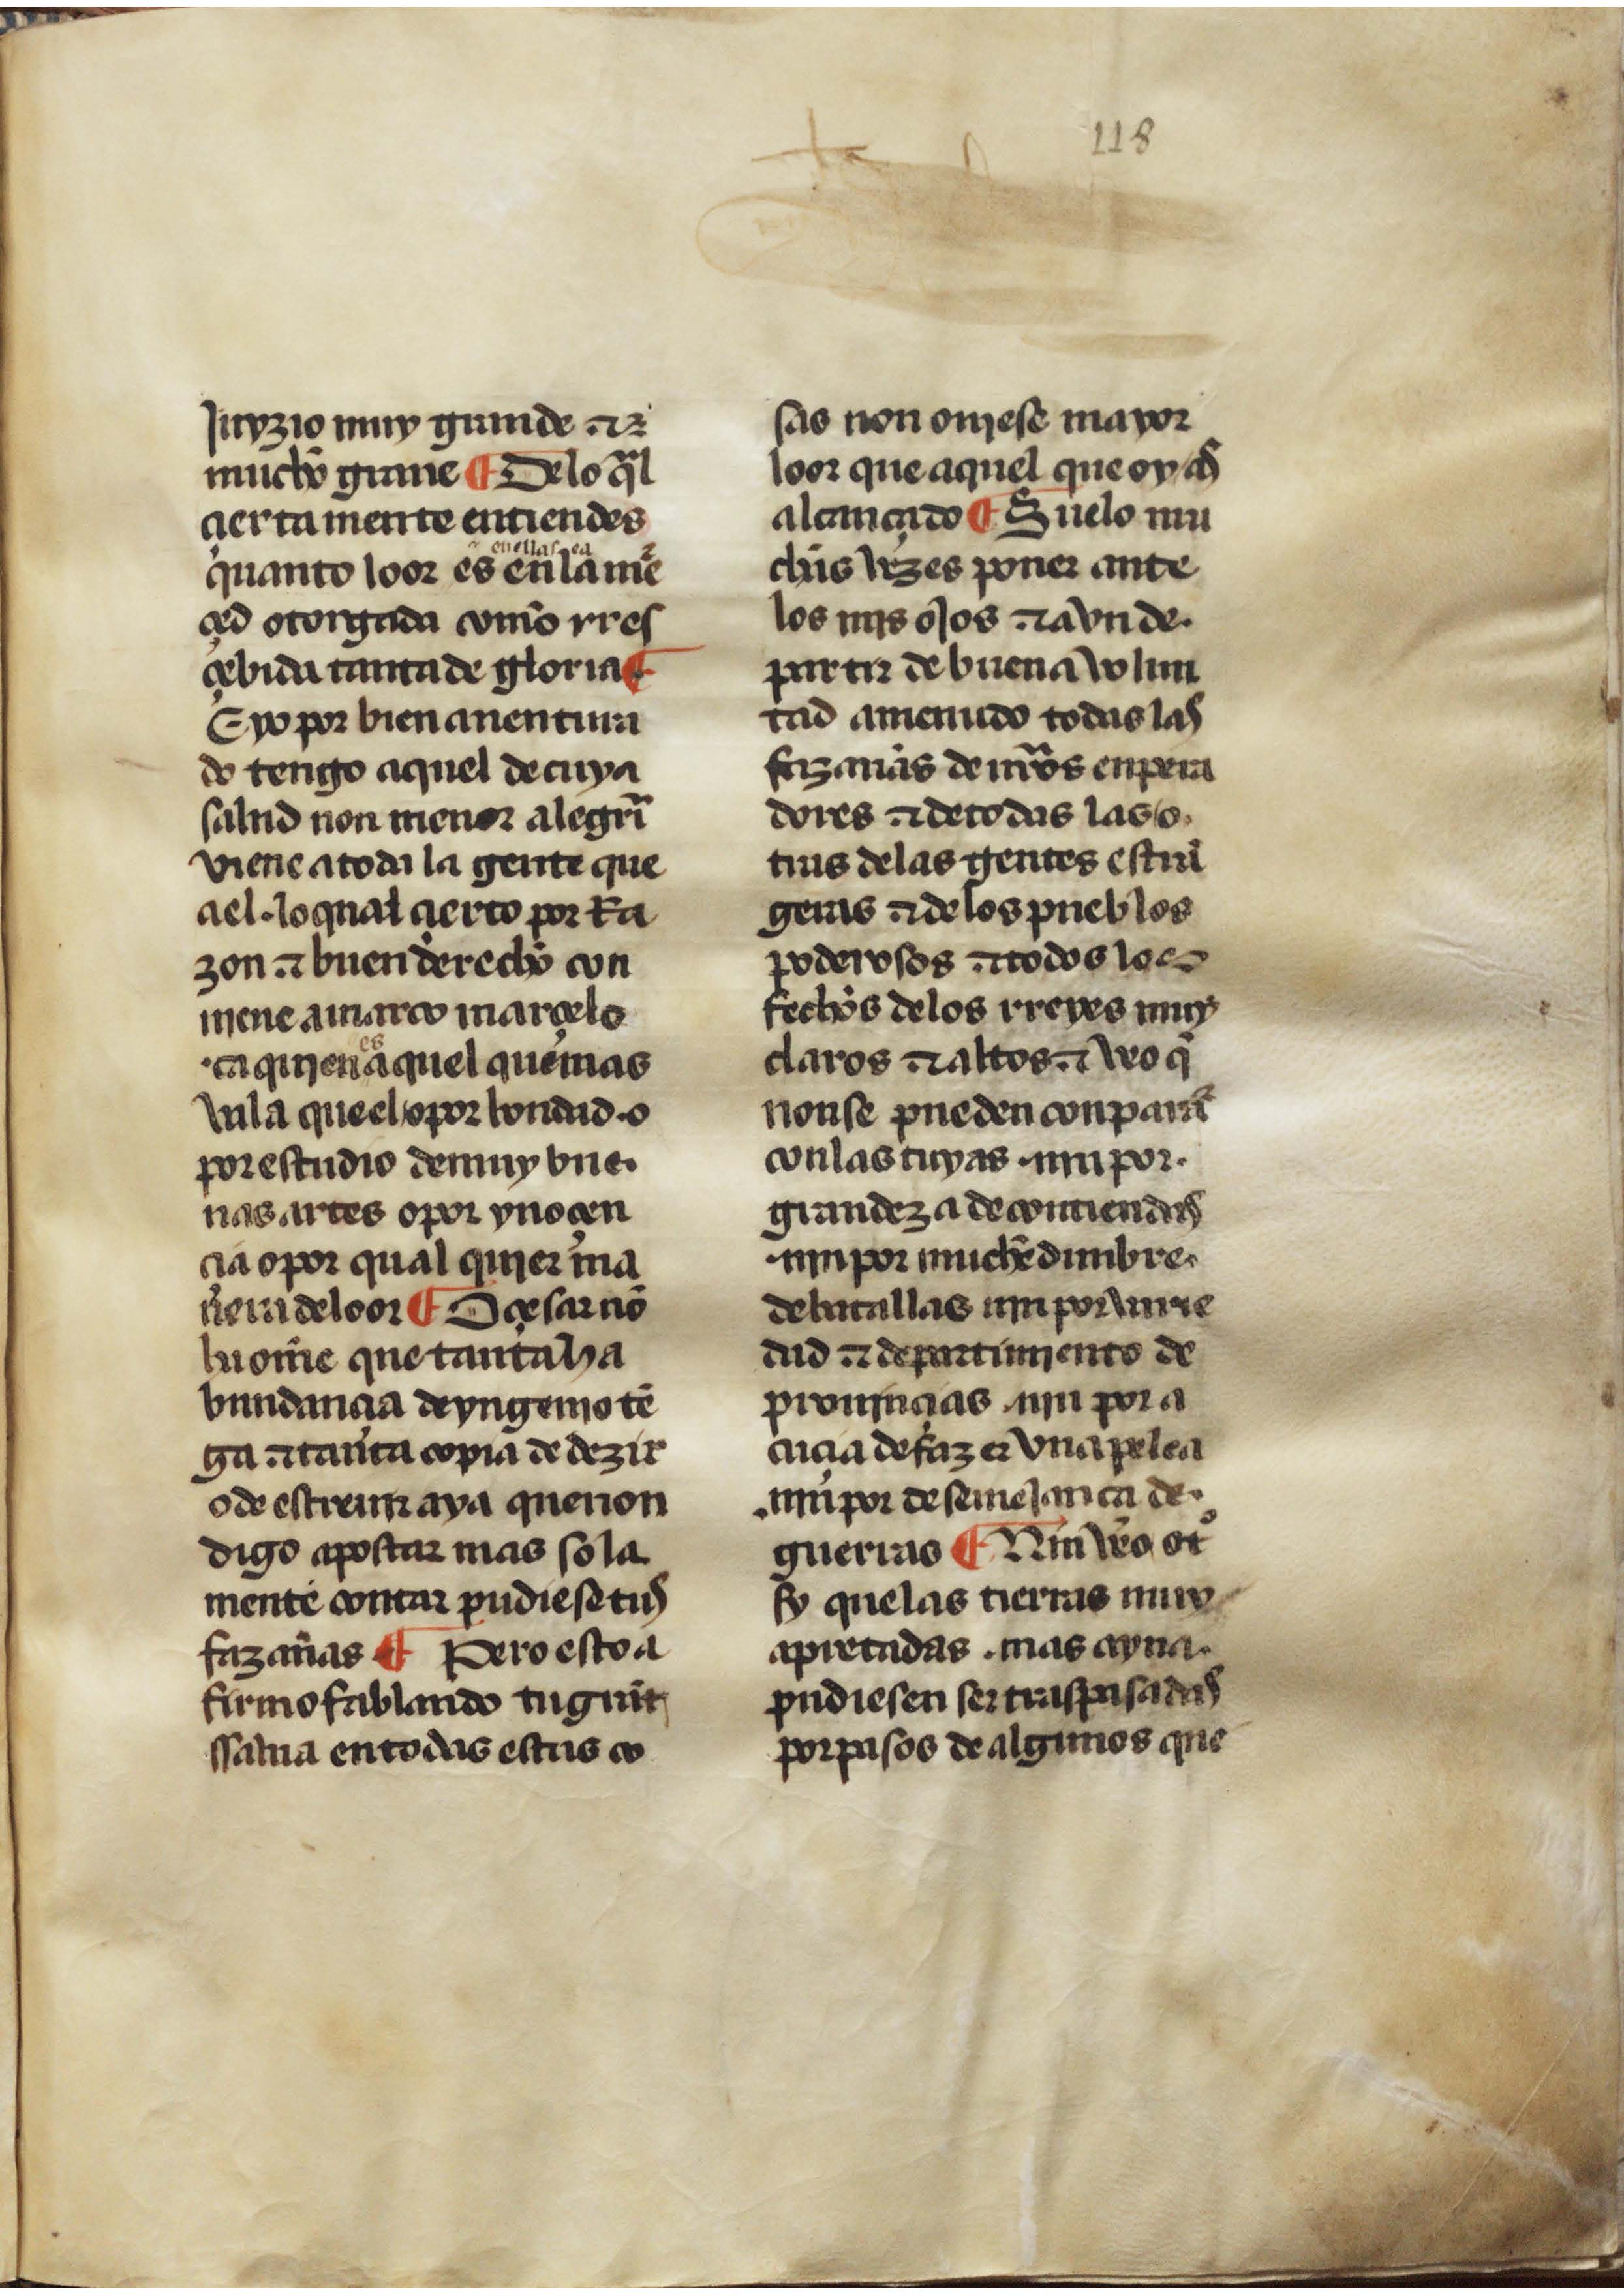 118
Juyzio muy grande ⁊
mucho graue ¶ Delo q̃l
çierta mente entiendes
en ellas ea
quanto loor es en la me̾r
çed otorgada com̃o rres
çebida tanta de gloria ¶
E yo por bien auentura
do tengo aquel de cuya
salud non menor alegrĩ
viene a toda la gente que
a el · lo qual çierto por Ra
zon ⁊ buen derecho con
uiene a marco marçelo
es
· ca quien a quel que mas
vala que el o por bondad · o
por estudio de muy bue·
nas artes o por ynoçen
cia o por qual quier ma
ñera de loor ¶ O çesar nõ
ha om̃e que tanta ha
bundançia de yngenio tẽ
ga ⁊ tanta copia de dezir
o de escreuir aya que non
digo apostar mas sola
mente contar pudiese tus
fazañas ¶ Pero esto a
firmo fablando tu graçi
ssalua en todas estas co
sas non ouiese mayor
loor que aquel que oy as
alcançado ¶ Suelo mu
chas vezes poner ante
los mis ojos ⁊ a vn de·
partir de buena volun
tad amenudo todas las
fazañas de nr̃os enpera
dores ⁊ de todas las o·
tras delas gentes estrã
geras ⁊ de los pueblos
poderosos ⁊ todos los
fechos delos rreyes muy
claros ⁊ altos ⁊ veo q̃
non se pueden conparar̾
con las tuyas · nin por·
grandeza de contiendas
· nin por muchedunbre·
de batallas nin por varie
dad ⁊ departimiento de
prouinçias · nin por a
cuçia de fazer vna pelea
· nin por desemejança de·
guerras ¶ Nin veo otº
sy que las tierras muy
apretadas · mas ayna·
pudiesen ser traspasadas
por pasos de algunos que